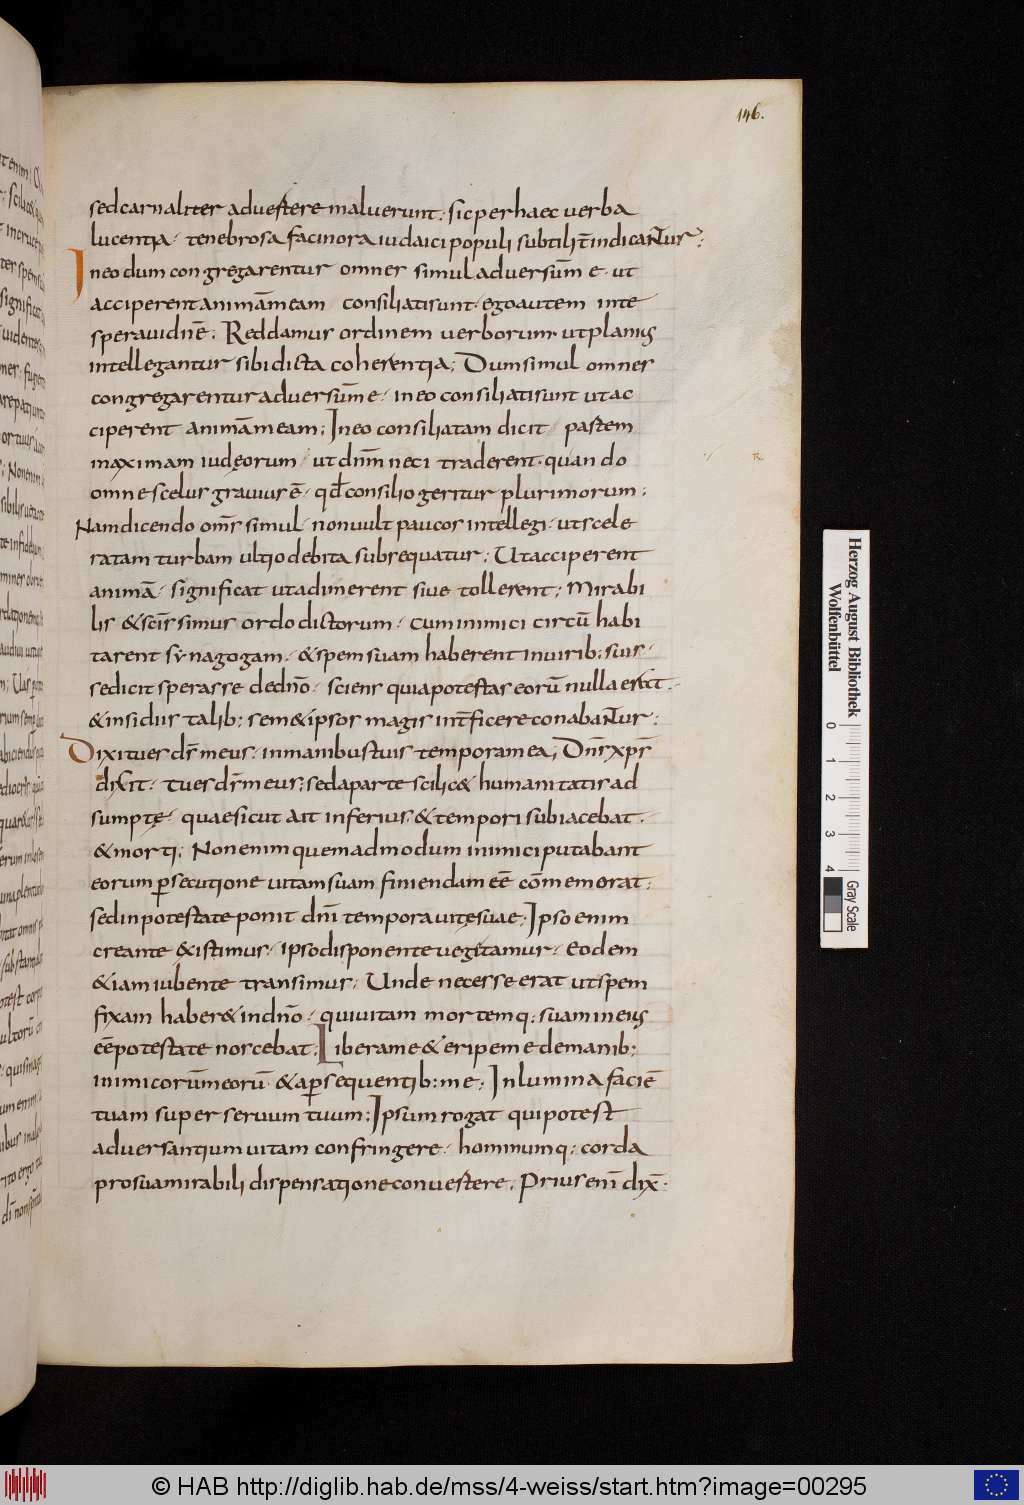 146.
sed carnaliter advertere maluerunt; sic per haec verba
lucentia· tenebrosa facinora iudaici populi subtilit̄ indicantur;
In eo dum congregarentur omnes simul adversū me· ut
acciperent animā meam consiliati sunt· ego autem in te
speraui dn̄e; Reddamus ordinem verborum· ut planius
intellegantur sibi dicta coherentia; Dum simul omnes
congregarentur adversū me· in eo consiliati sunt ut ac
ciperent animā meam; In eo consiliatam dicit· pastem
maximam iudęorum· ut dn̄m neci traderent· quando
omne scelus gravius ē· qd̄ consilio geritur plurimorum;
Nam dicendo om̄s simul· non uult paucos intellegi· ut scele
ratam turbam ultio debita subsequatur; Ut acciperent
animā· significat ut adimerent siue tollerent; Mirabi
lis & sc̄issimus ordo dictorum· cum inimici circū habi
tarent synagogam· & spem suam haberent in uirib; suis·
sed icit sperasse de dn̄o· sciens quia potestas eorū nulla erat·
& insidiis talib; sem&ipsos magis int̄ficere conabantur;
Dixi tu es ds̄ meus· in manibus tuis tempora mea; Dn̄s xp̄s
dixit· tu es ds̄ meus; sed a parte scilic& humanitatis ad
sumptę· quae sicut ait inferius· & tempori subiacebat·
& morti; Non enim quemadmodum inimici putabant
eorum p̄secutione uitam suam finiendam eē cōmemorat;
sed in potestate ponit dn̄i tempora uitę suae; Ipso enim
creante & existimus· ipso disponente vegetamur· eodem
& iam iubente transimus· Unde necesse erat ut spem
fixam haber& in dn̄o· qui uitam mortemq; suam in eius
eē potestate noscebat; Libera me & eripe me de manib;
inimicorū meorū· & a p̄sequentib; me; Inlumina faciē
tuam super servum tuum; Ipsum rogat qui potest
adversantium uitam confringere· hominumq; corda
pro sua mirabili dispensatione convertere; Prius eni̅ dix̄·
Herzog August Bibliothek
Wolfenbüttel
0 1 2 3 4
Gray Scale
© HAB http://diglib.hab.de/mss/4-weiss/start.htm?image=00295